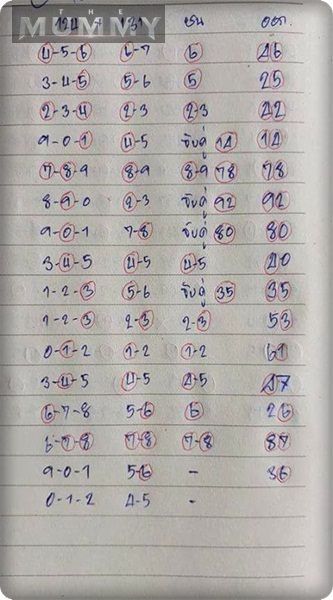 THE
MUMMY
4-5-6 6-7 6 46
3-4-5 5-6 5 25
2-3-4 2-3 2-3 42
9-0-1 4-5 จับคู่ 14 14
7-8-9 8-9 8-9 78 78
8-9-0 2-3 จับคู่ 92 92
9-0-1 7-8 จับคู่ 80 80
3-4-5 4-5 4-5 40
1-2-3 5-6 จับคู่ 35 35
1-2-3 2-3 2-3 53
0-1-2 1-2 1-2 61
3-4-5 4-5 4-5 47
6-7-8 5-6 6 26
6-7-8 7-8 7-8 87
9-0-1 5-6 - 36
0-1-2 4-5 -